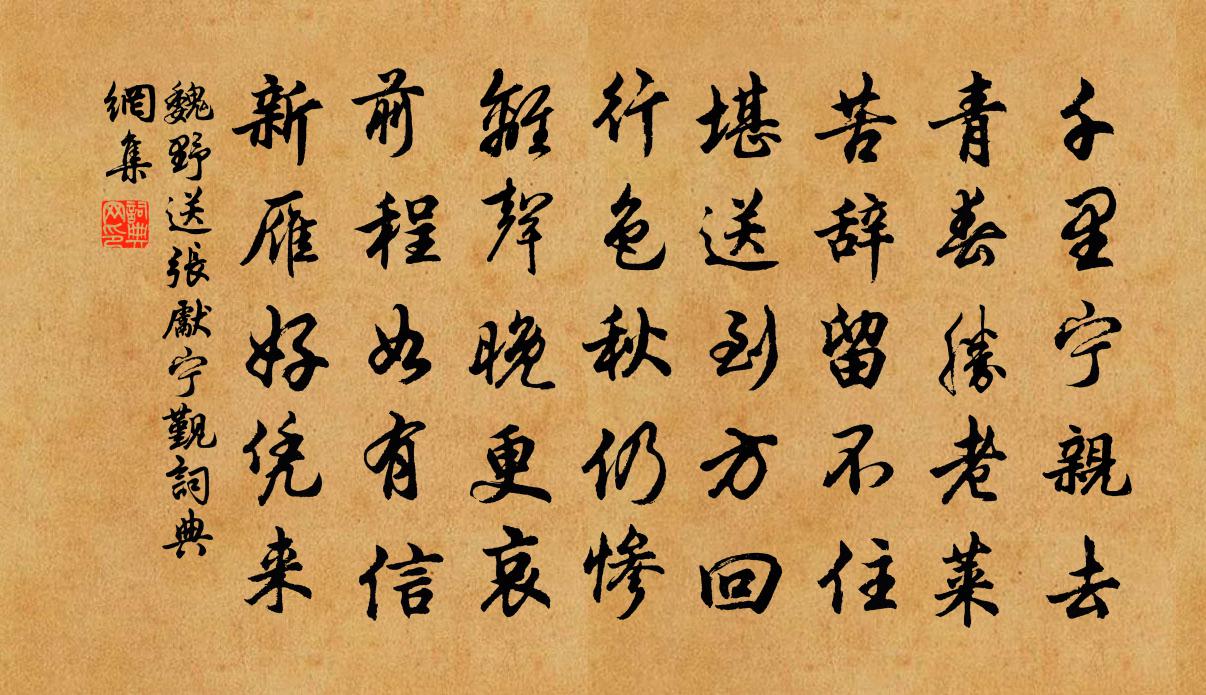 千里宁親去
青春勝老莱
苦辞留不住
堪送到方回
行色秋仍惨
離聲晚更哀
前程如有信
新雁好凭来
魏野送張獻宁觐詞典
網集
詞典
网印